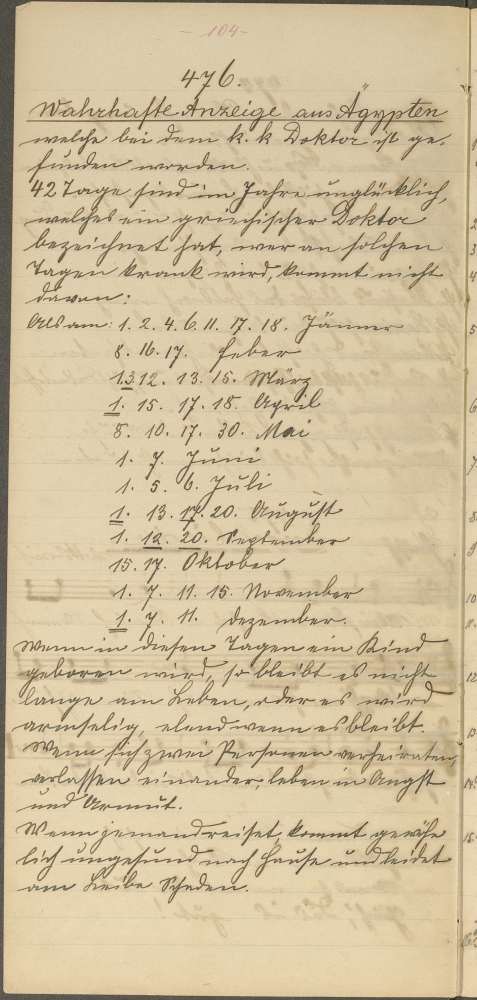 - 104 -
476.
Wahrhafte Anzeige aus Ägypten
welche bei dem k. k Doktor ist ge-
funden worden.
42 Tage sind im Jahre unglücklich,
welches ein griechischer Doktor
bezeichnet hat, wer an solchen
Tagen krank wird, kommt nicht
davon:
Als am: 1. 2. 4. 6. 11. 17. 18. Jänner
8. 16. 17. Feber
1.3.12. 13. 15. März
1. 15. 17. 18. April
8. 10. 17. 30. Mai
1. 7. Juni
1. 5. 6. Juli
1. 13. 17. 20. August
1. 12. 20. September
15. 17. Oktober
1. 7. 11. 15. November
1. 7. 11. Dezember.
Wenn in diesen Tagen ein Kind
geboren wird, so bleibt es nicht
lange am Leben, oder es wird
armselig, elend wenn es bleibt.
Wenn sich zwei Personen verheiraten,
verlassen einander, leben in Angst
und Armut.
Wenn jemand reiset, kommt gewöhn
lich ungesund nach Hause und leidet
am Leibe Schaden.